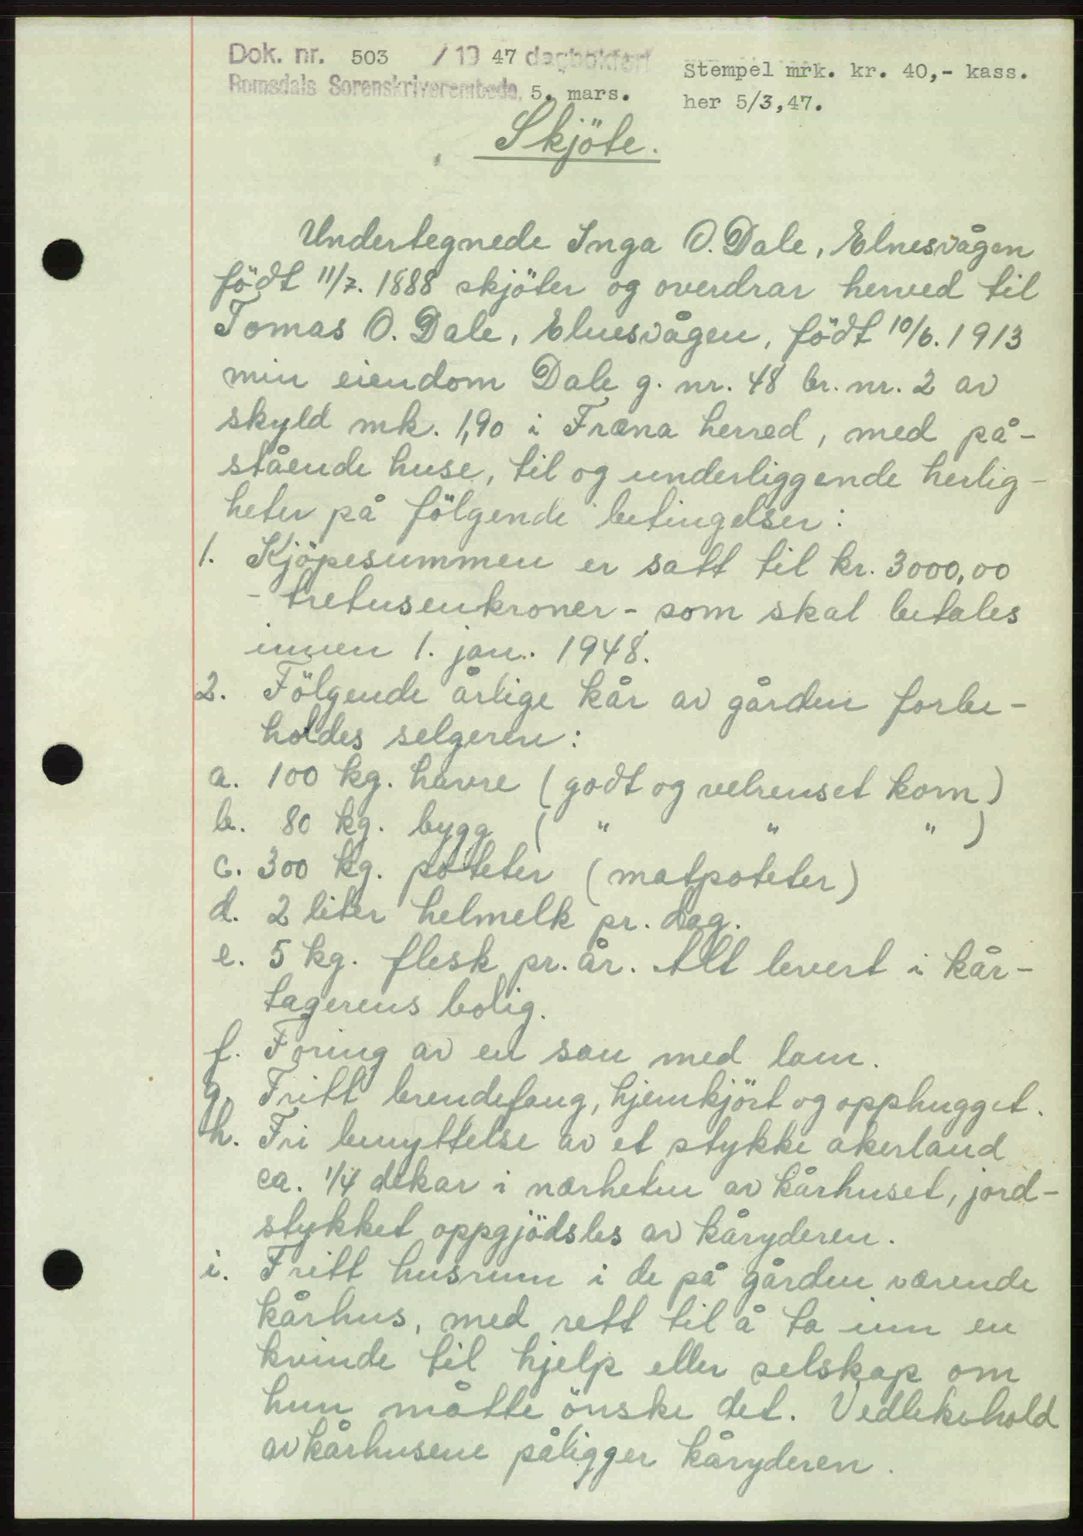 Dok. nr. 503 / 19 47 dagbokført
Romsdals Sorenskriverembede, 5. mars.
Stempel mrk. kr. 40,- kass.
her 5/3,47.
Skjöte.
Undertegnede Inga O. Dale, Elnesvågen
födt 11/7. 1888 skjöter og overdrar herved til
Tomas O. Dale, Elnesvågen, födt 10/6. 1913
min eiendom Dale g. nr. 48 br. nr. 2 av
skyld mk. 1,90 i Fræna herred, med på-
stående huse, til og underliggende herlig-
heter på fölgende betingelser:
1. Kjöpesummen er satt til kr. 3000,00
- tretusenkroner - som skal betales
innen 1. jan. 1948.
2. Fölgende årlige kår av gården forbe-
holdes selgeren:
a. 100 kg. havre (godt og velrenset korn)
b. 80 kg. bygg ( " " " )
c. 300 kg. poteter (matpoteter)
d. 2 liter helmelk pr. dag.
e. 5 kg. flesk pr. år. Alt levert i kår-
tagerens bolig.
f. Foring av en sau med lam.
g. Fritt brendefang, hjemkjört og opphugget.
h. Fri benyttelse av et stykke akerland
ca. 1/4 dekar i nærheten av kårhuset, jord-
stykket oppgjödsles av kåryderen.
i. Fritt husrum i de på gården værende
kårhus, med rett til å ta inn en
kvinde til hjelp eller selskap om
hun måtte önske det. Vedlikehold
av kårhusene påligger kåryderen.